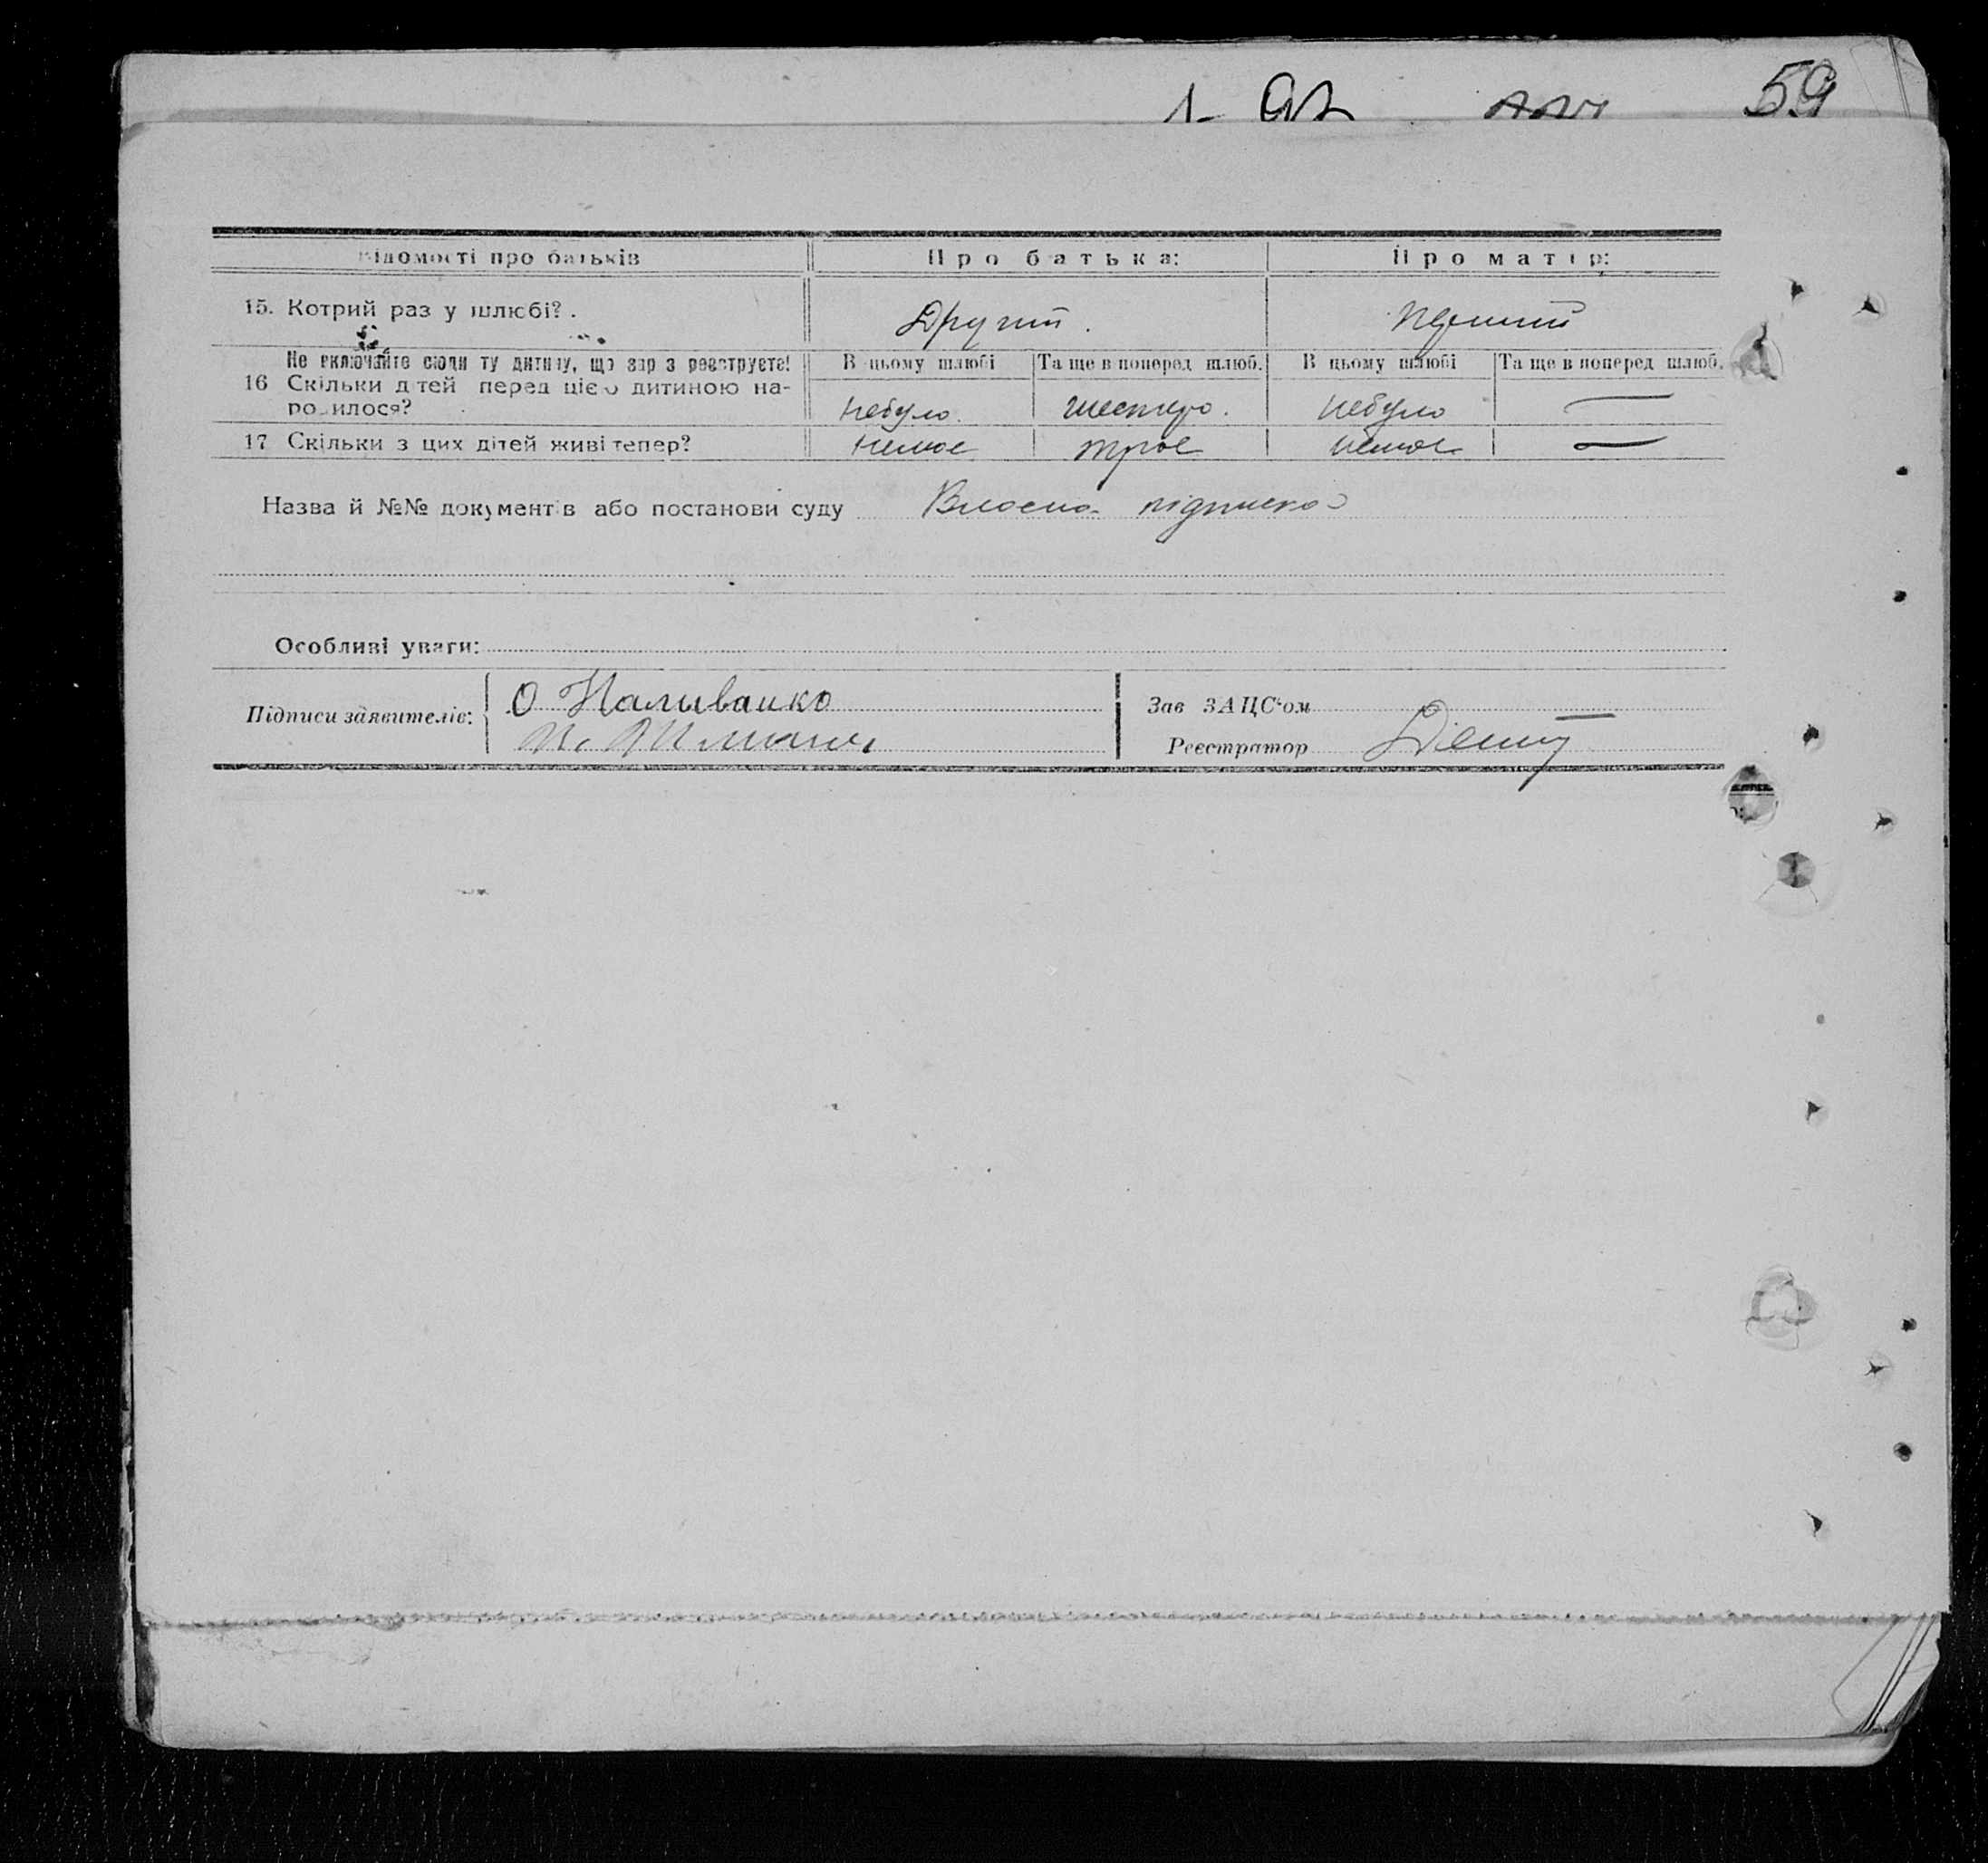 59
Відомості про батьків Про батька: Про матір:
15. Котрий раз у шлюбі? . Другий . Перший
Не включайте сюди ту дитину, що зар з реєструєте! В цьому шлюбі Та ще в поперед шлюб. В цьому шлюбі Та ще в поперед шлюб.
16 Скільки дітей перед цією дитиною на-
родилося? небуло. шестеро. небуло —
17 Скільки з цих дітей живі тепер? немає троє немає —
Назва й №№ документів або постанови суду Власна підписка
Особливі уваги:
Підписи заявителів: О Наливайко
Зав ЗАЦС'ом
Реєстратор